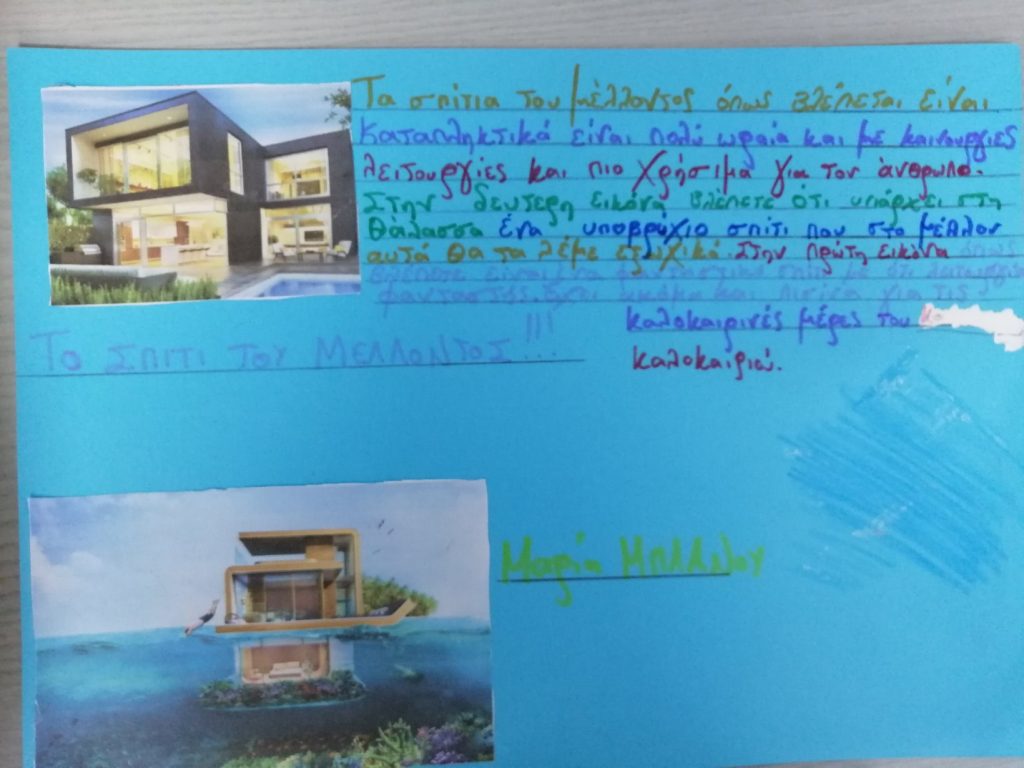 Τα σπίτια του μέλλοντος όπως βλέπεται είναι
καταπληκτικά είναι πολύ ωραία και με καινουργιες
λειτουργίες και πιο χρήσιμα για τον άνθρωπο.
Στην δευτερη εικόνα βλέπετε ότι υπάρχει στη
θάλασσα ένα υποβρύχιο σπίτι που στο μέλλον
αυτά θα τα λέμε εξοχικά. Στην πρώτη εικόνα όπως
βλέπετε είναι ένα φανταστικό σπίτι με ότι
φανταστείς. Έχει ακόμα και πισίνα για τις
καλοκαιρινές μέρες του
καλοκαιριού.
ΤΟ ΣΠΙΤΙ ΤΟΥ ΜΕΛΛΟΝΤΟΣ!!!
Μαρία